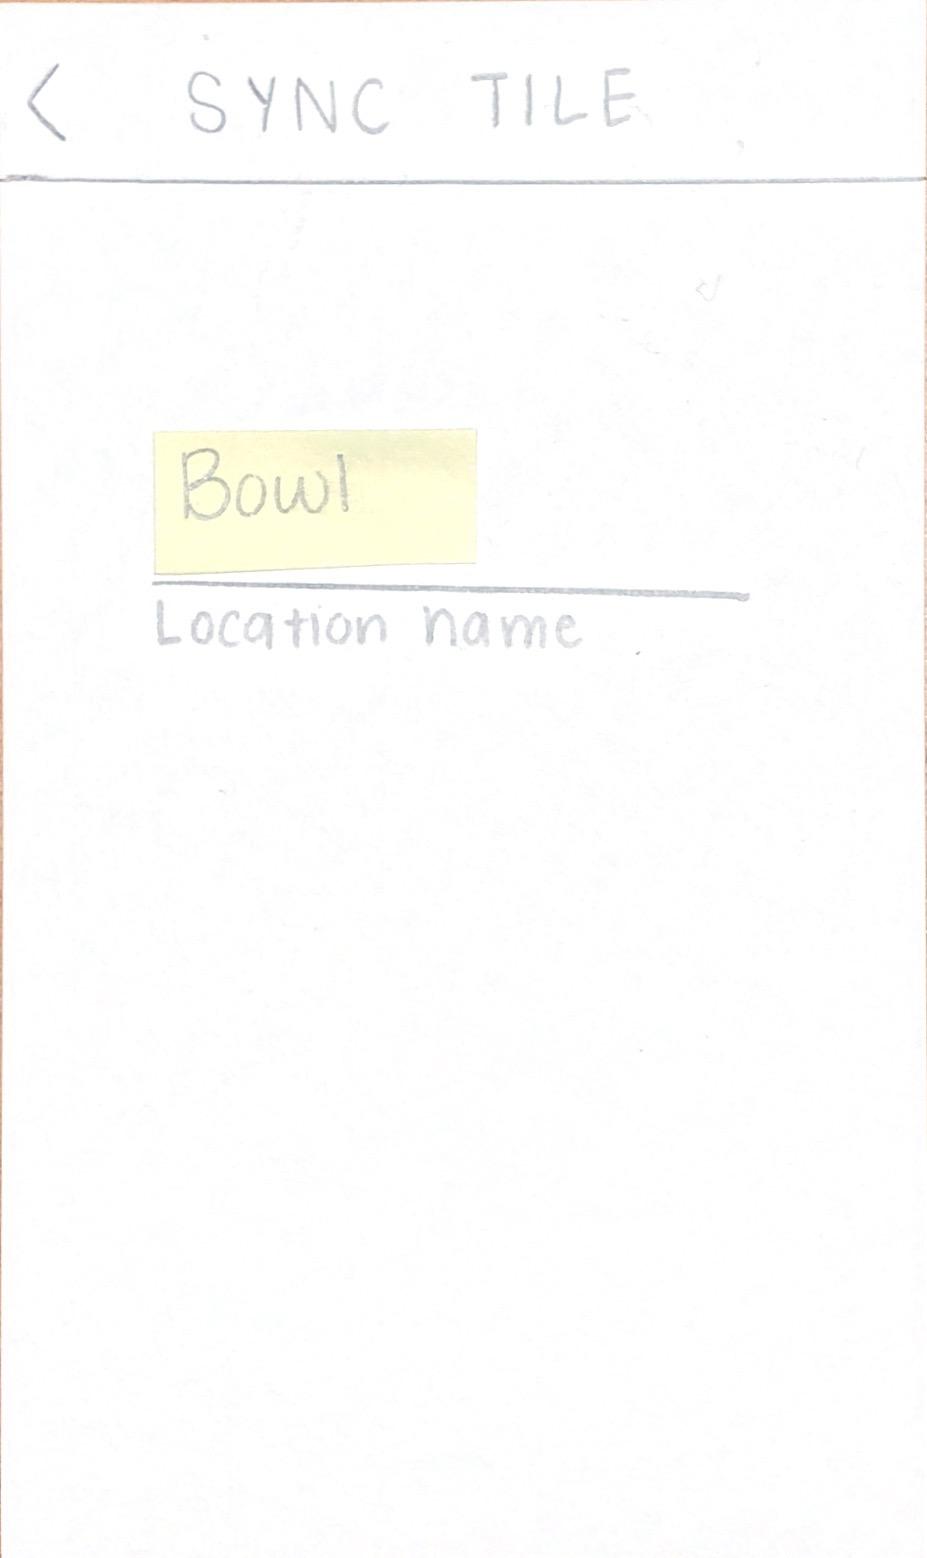 < SYNC TILE
Bowl
Location name